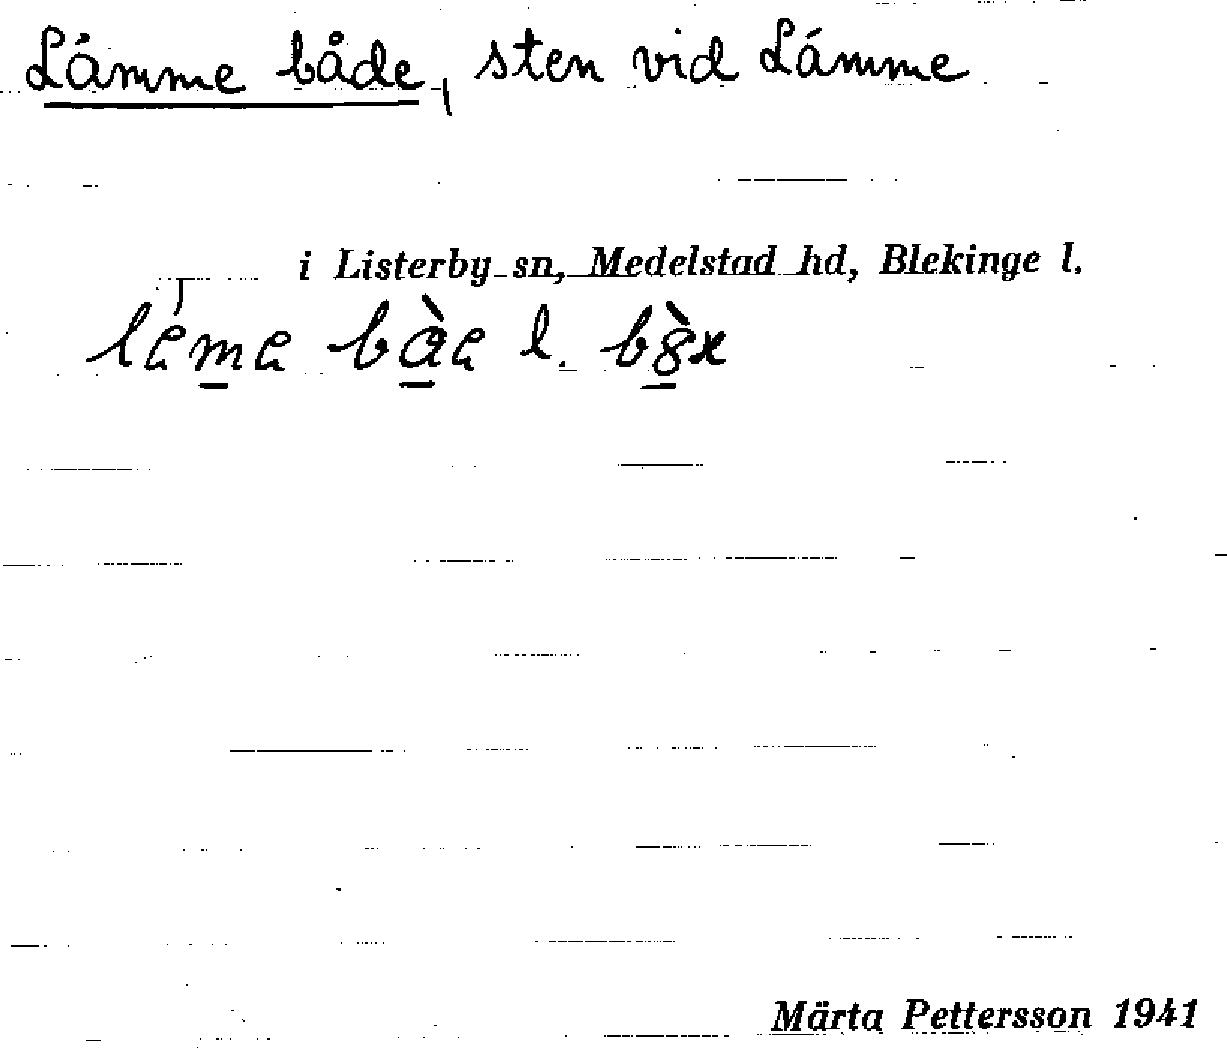 Låmme både, sten vid Låmme
i Listerby sn, Medelstad hd, Blekinge l.
l.
Märta Pettersson 1941